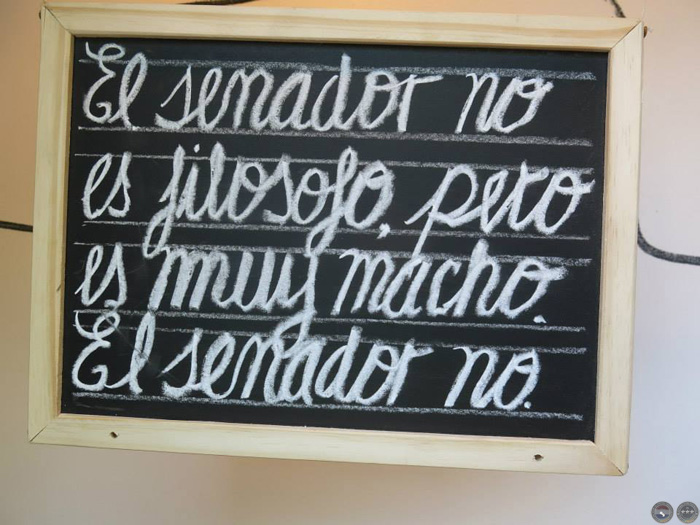 El senador no
es filosofo, pero
es muy macho.
El senador no.